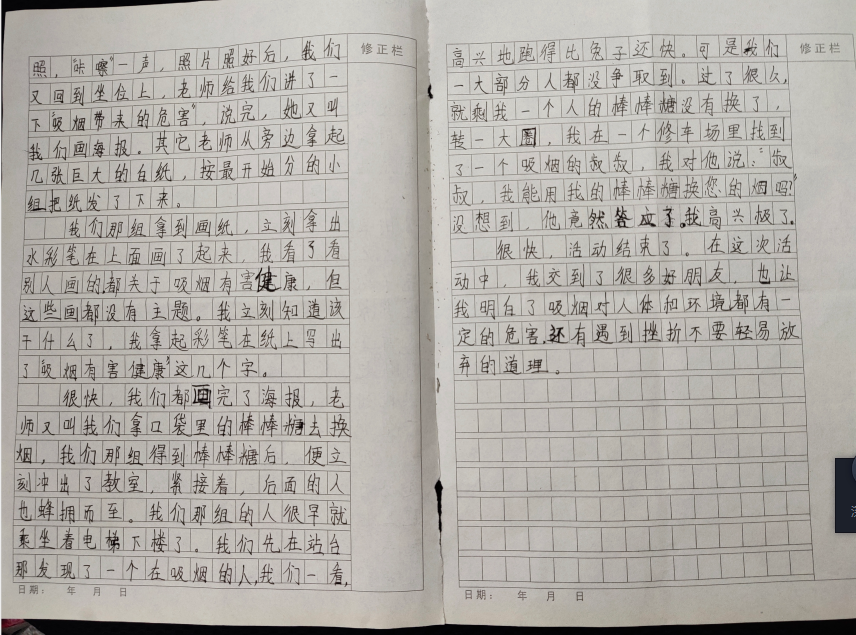 照，“咔嚓”一声，照片照好后，我们
又回到坐位上，老师给我们讲了一
下“吸烟带来的危害”，说完，她又叫
我们画海报。其它老师从旁边拿起
几张巨大的白纸，按最开始分的小
组把纸发了下来。
我们那组拿到画纸，立刻拿出
水彩笔在上面画了起来，我看了看
别人画的都关于吸烟有害健康，但
这些画都没有主题。我立刻知道该
干什么了，我拿起彩笔在纸上写出
了“吸烟有害健康”这几个字。
很快，我们都画完了海报，老
师又叫我们拿口袋里的棒棒糖去换
烟，我们那组得到棒棒糖后，便立
刻冲出了教室，紧接着，后面的人
也蜂拥而至。我们那组的人很早就
乘坐着电梯下楼了。我们先在站台
那发现了一个在吸烟的人，我们一看，
日期： 年 月 日
修正栏
高兴地跑得比兔子还快。可是我们
一大部分人都没争取到。过了很久，
就剩我一个人的棒棒糖没有换了，
转一大圈，我在一个修车场里找到
了一个吸烟的叔叔，我对他说：“叔
叔，我能用我的棒棒糖换您的烟吗？”
没想到，他竟然答应了。我高兴极了。
很快，活动结束了。在这次活
动中，我交到了很多好朋友，也让
我明白了吸烟对人体和环境都有一
定的危害，还有遇到挫折不要轻易放
弃的道理。
日期： 年 月 日
修正栏